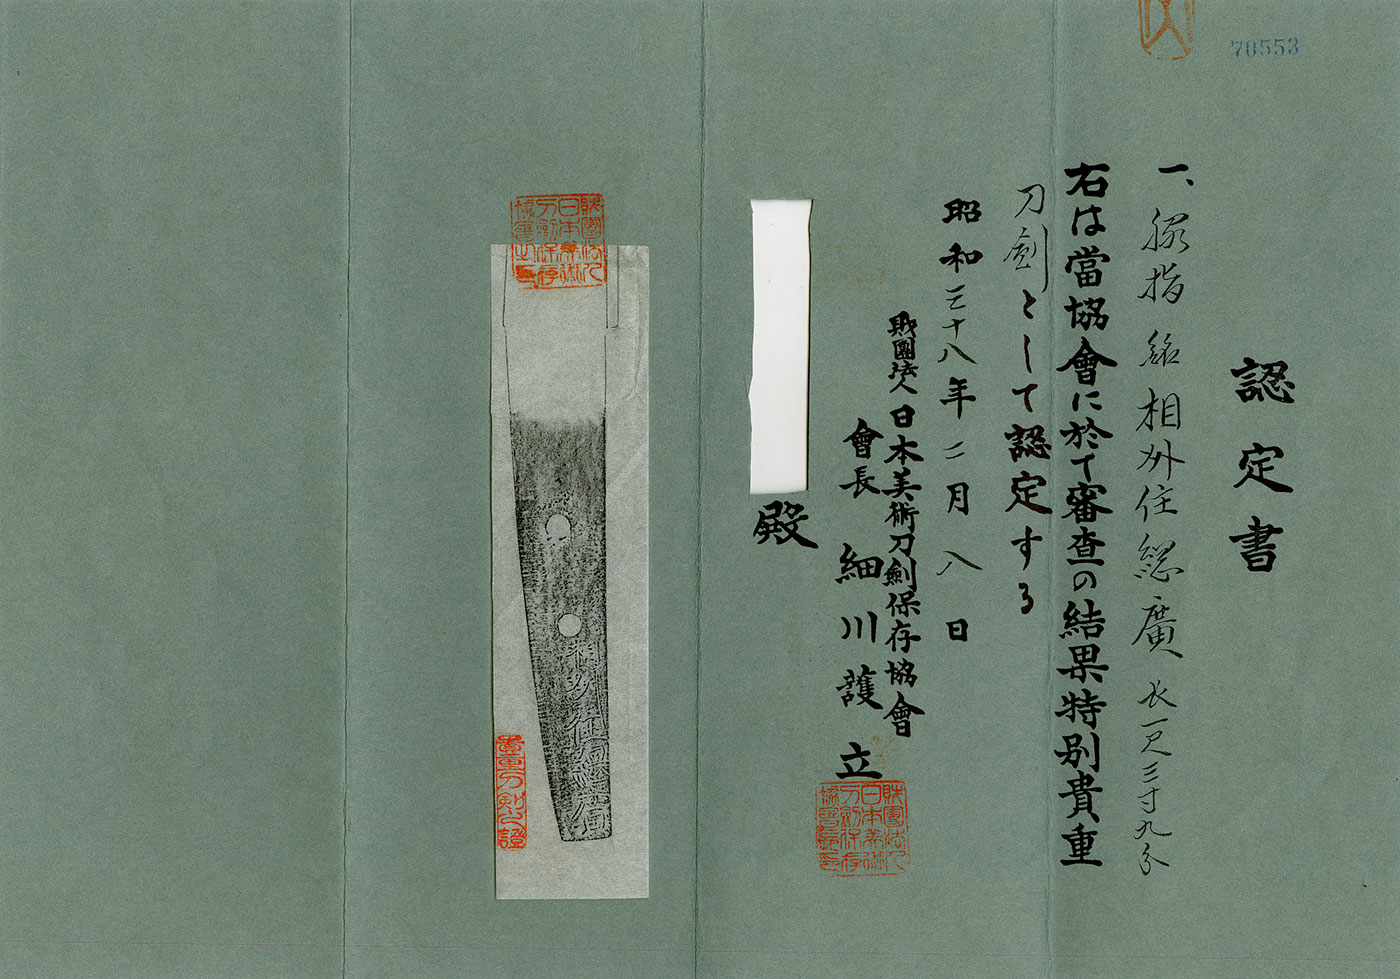 70553
認定書
一、脇指 銘 相州住総廣 長一尺三寸九分
右は當協會に於て審査の結果特別貴重
刀劍として認定する
昭和三十八年二月八日
財團法人日本美術刀劍保存協會
會長 細川護立
殿
財團法人
日本美術
刀劍保存
協會長印
財團法人
日本美術
刀劍保存
協會之印
相州住綱總廣
貴重刀剣之證